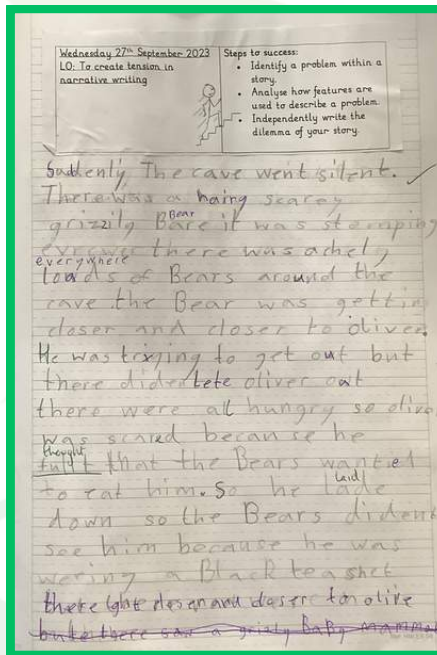 Wednesday 27th September 2023
LO: To create tension in
narrative writing
Steps to success:
• Identify a problem within a
story.
• Analyse how features are
used to describe a problem.
• Independently write the
dilemma of your story.
Suddenly The cave went silent.
There was a hairy scarey
Bear
grizzily Bare it was stomping
there was achely
everywhere
loads of Bears around the
cave the Bear was gettin
closer and closer to oliver.
He was trying to get out but
there didentete oliver out
there were all hungry so olive
was scared because he
thought
that the Bears wanted
laid
to eat him. So he lade
down so the Bears dident
see him because he was
wering a Black teashet
closer and closere to olive
there saw a grisly BaBy mammal